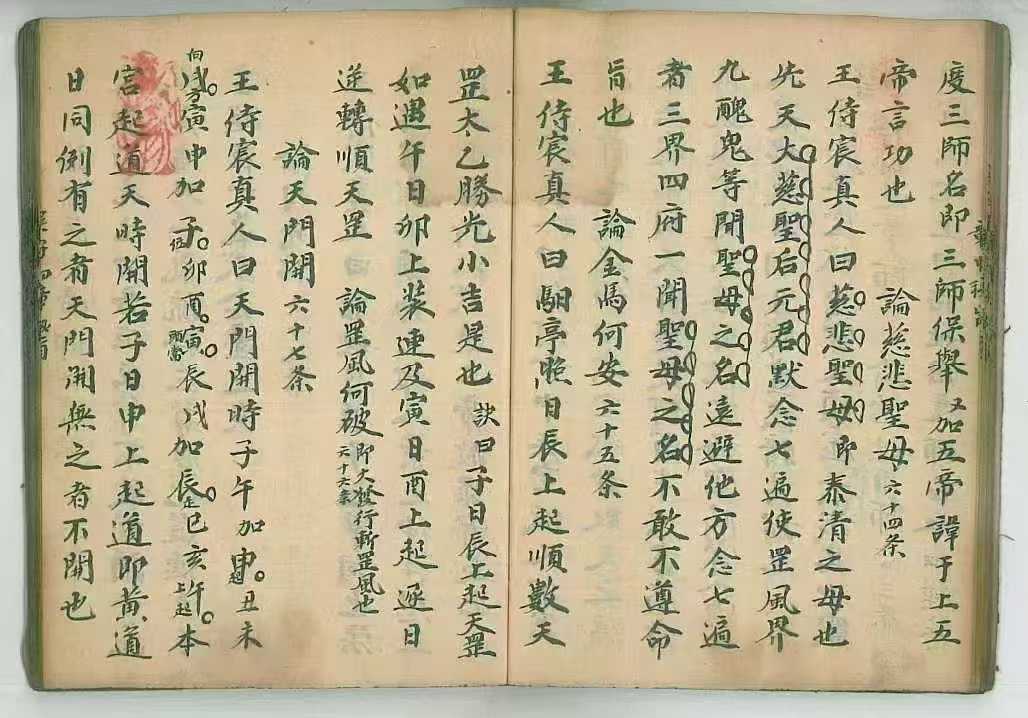 度三師名即三師保舉又加五帝諱于上五
帝言功也　論慈悲聖母六十四条
王侍宸真人曰慈悲聖母即泰清之母也
先天大慈聖后元君默念七遍使罡風界
九醜鬼等聞聖母之名遠避他方念七遍
者三界四府一聞聖母之名不敢不遵命
旨也　論金馬何安六十五条
王侍宸真人曰馹亭临日辰上起順數天
罡太乙勝光小吉是也　訣曰子日辰上起天罡
如遇午日卯上装速及寅日酉上起逐日
逆轉順天罡　論罡風何破即大煞行斬罡風也六十六条
論天門開六十七条
王侍宸真人曰天門開時子午加申丑未
向戌方寅申加子卯酉寅辰戌加辰巳亥午上起本
宮起道天時開若子日申上起道即黄道
日同例有之者天門開無之者不開也